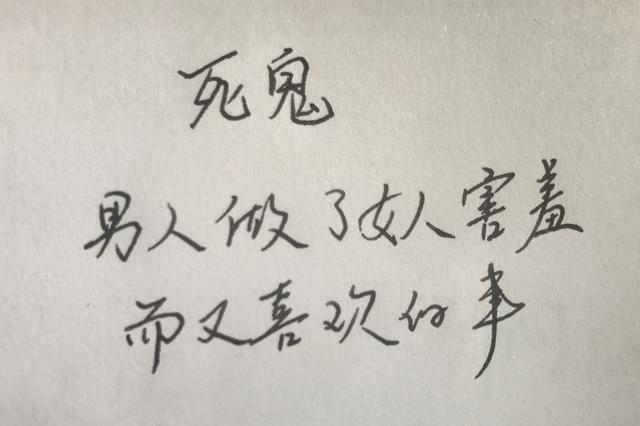 死鬼
男人做了女人害羞
而又喜欢的事